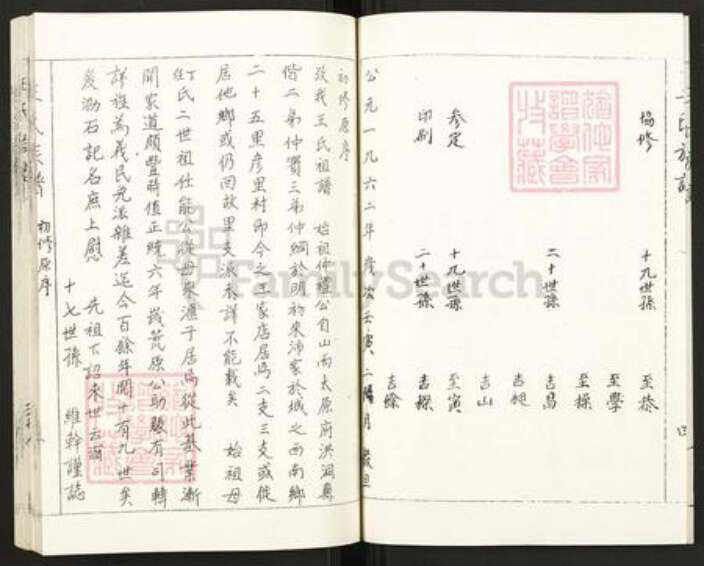 協修
十九世孫
至恭
至學
至操
二十世孫
吉昌
吉昶
吉山
參定
十九世孫
至寅
印刷
二十世孫
吉操
吉餘
公元一九六二年歲次壬寅二陽月穀旦
初修原序
攷我王氏祖譜 始祖仲禮公自山西太原府洪洞縣
偕二弟仲實三弟仲綱於明初來沛家於城之西南鄉
二十五里彥里村即今之王家店居焉二支三支或徙
居他鄉或仍回故里支派未詳不能載矣 始祖母
丁氏二世祖仕能公從母來滙子居焉從此基業漸
開家道頗豐時值正統六年歲荒原公助賑有司轉
詳旌為義民先派雖差迄今百餘年間十有九世矣
爰泐石記名庶上慰 先祖下詔來世云爾
十七世孫 維幹謹誌
初修原序
FamilySearch